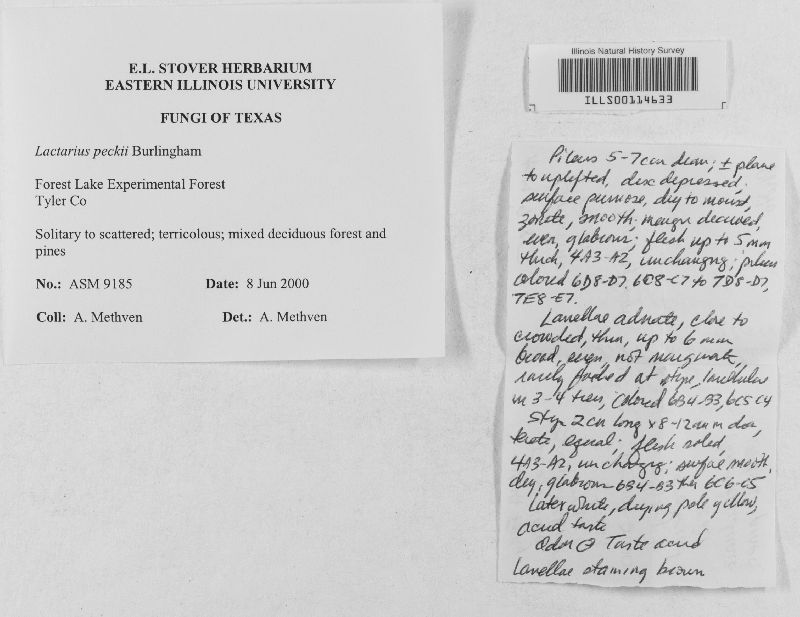 E.L. STOVER HERBARIUM
EASTERN ILLINOIS UNIVERSITY
FUNGI OF TEXAS
Lactarius peckii Burlingham
Forest Lake Experimental Forest
Tyler Co
Solitary to scattered; terricolous; mixed deciduous forest and
pines
No.: ASM 9185 Date: 8 Jun 2000
Coll: A. Methven Det.: A. Methven
Illinois Natural History Survey
ILLS00114633
Pileus 5-7 cm diam; ± plane
to uplifted, disc depressed;
surface pruinose, dry to moist,
zonate, smooth; margin decurved,
even, glabrous; flesh up to 5 mm
thick, 4A3-A2, unchanging; pileus
colored 6D8-D7, 6C8-C7 to 7D8-D7,
7E8-E7.
Lamellae adnate, close to
crowded, thin, up to 6 mm
broad, even, not marginate,
rarely forked at stipe, lamellulae
in 3-4 tiers, colored 6B4-B3, 6C5-C4
Stipe 2 cm long x 8-12 mm diam,
terete, equal; flesh solid,
4A3-A2, unchanging; surface smooth,
dry, glabrous 6B4-B3 then 6C6-C5
Latex white, drying pale yellow,
acrid taste
Odor ⊖ Taste acrid
Lamellae staining brown